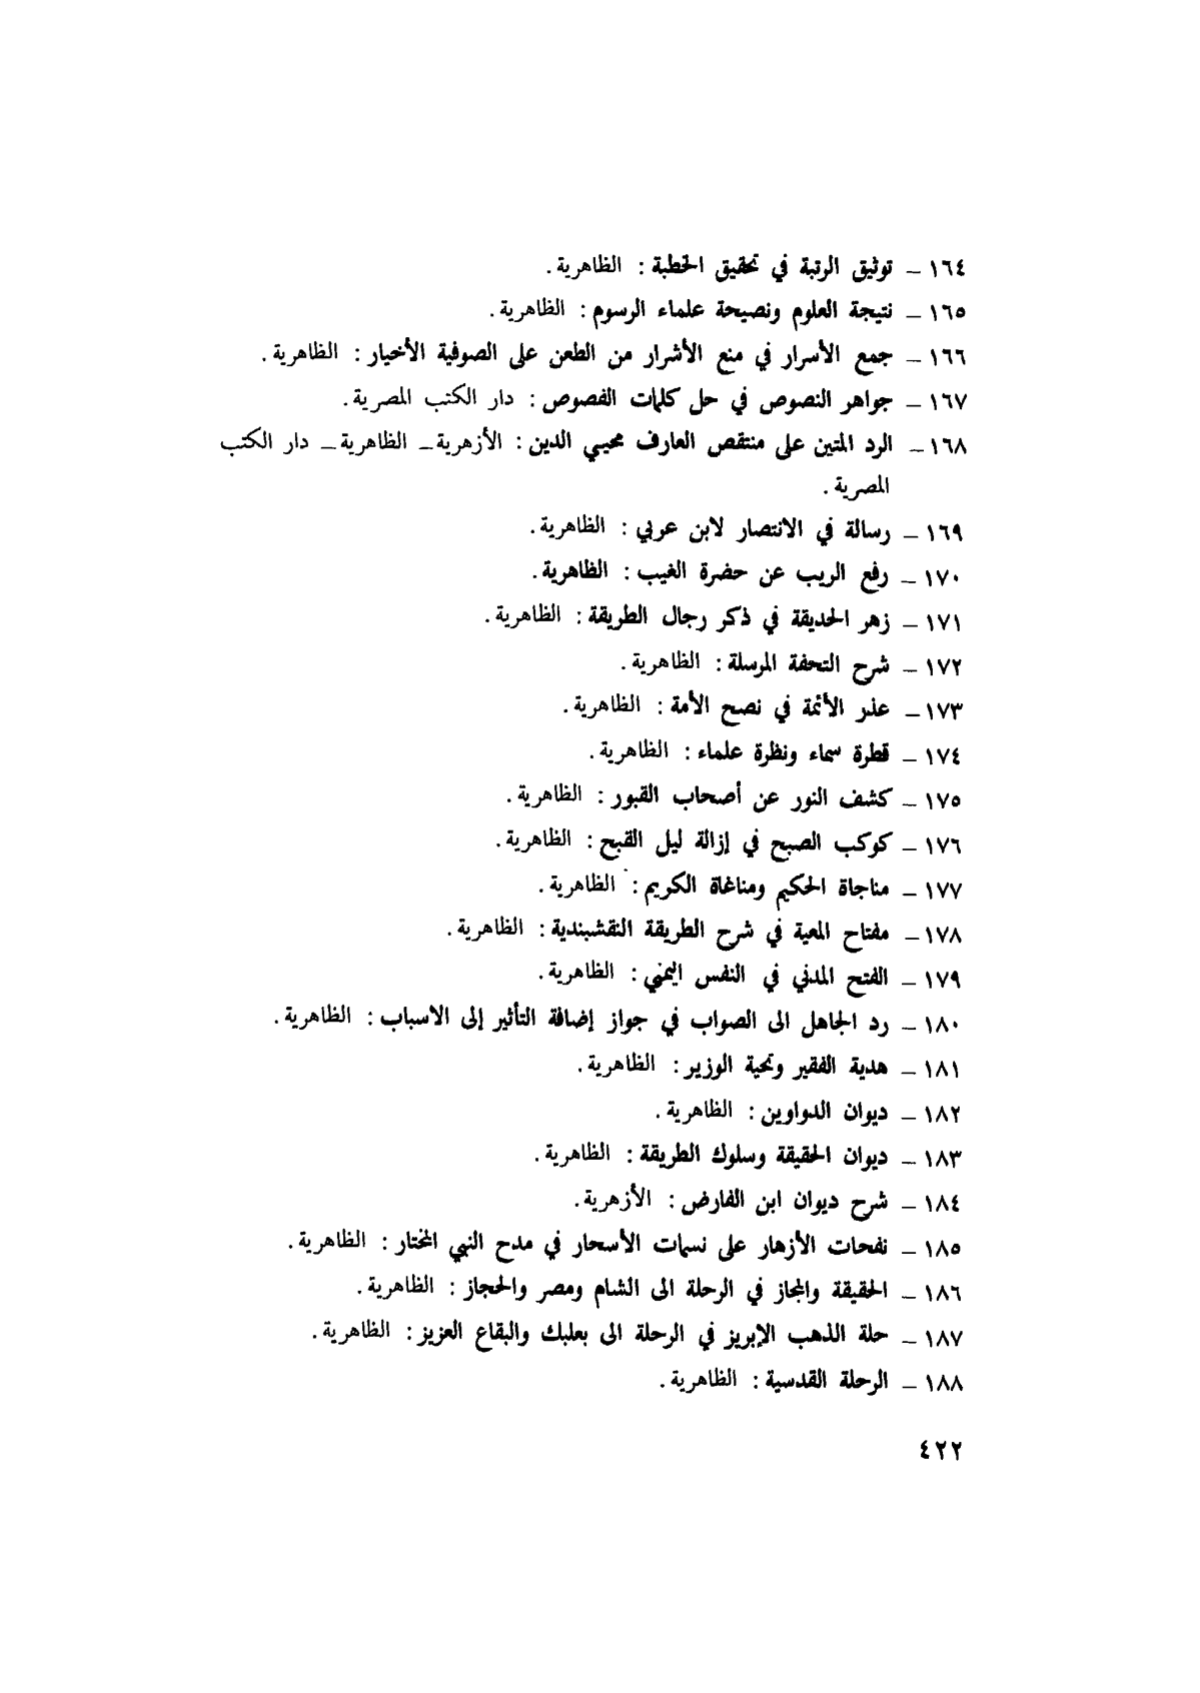 ١٦٤ – توثيق الرتبة في تحقيق الخطبة : الظاهرية .
١٦٥ – نتيجة العلوم ونصيحة علماء الرسوم : الظاهرية .
١٦٦ – جمع الأسرار في منع الأشرار من الطعن على الصوفية الأخيار : الظاهرية .
١٦٧ – جواهر النصوص في حل كلمات الفصوص : دار الكتب المصرية .
١٦٨ – الرد المتين على منتقص العارف محيي الدين : الأزهرية – الظاهرية – دار الكتب
المصرية .
١٦٩ – رسالة في الانتصار لابن عربي : الظاهرية .
١٧٠ – رفع الريب عن حضرة الغيب : الظاهرية .
١٧١ – زهر الحديقة في ذكر رجال الطريقة : الظاهرية .
١٧٢ – شرح التحفة المرسلة : الظاهرية .
١٧٣ – عذر الأئمة في نصح الأمة : الظاهرية .
١٧٤ – قطرة سماء ونظرة علماء : الظاهرية .
١٧٥ – كشف النور عن أصحاب القبور : الظاهرية .
١٧٦ – كوكب الصبح في إزالة ليل القبح : الظاهرية .
١٧٧ – مناجاة الحكيم ومناغاة الكريم : الظاهرية .
١٧٨ – مفتاح المعية في شرح الطريقة النقشبندية : الظاهرية .
١٧٩ – الفتح المدني في النفس اليمني : الظاهرية .
١٨٠ – رد الجاهل الى الصواب في جواز إضافة التأثير إلى الاسباب : الظاهرية .
١٨١ – هدية الفقير وتحية الوزير : الظاهرية .
١٨٢ – ديوان الدواوين : الظاهرية .
١٨٣ – ديوان الحقيقة وسلوك الطريقة : الظاهرية .
١٨٤ – شرح ديوان ابن الفارض : الأزهرية .
١٨٥ – نفحات الأزهار على نسمات الأسحار في مدح النبي المختار : الظاهرية .
١٨٦ – الحقيقة والمجاز في الرحلة الى الشام ومصر والحجاز : الظاهرية .
١٨٧ – حلة الذهب الإبريز في الرحلة الى بعلبك والبقاع العزيز : الظاهرية .
١٨٨ – الرحلة القدسية : الظاهرية .
٤٢٢